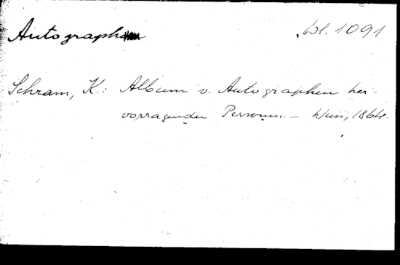 Autographen
bl. 1091
Schram, K.: Album v. Autographen her-
vorragender Personen. – Wien, 1864.